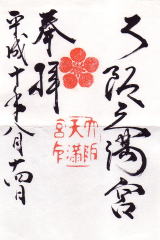 大阪天満宮
奉拝
大阪
天満
宮印
平成十年八月十四日